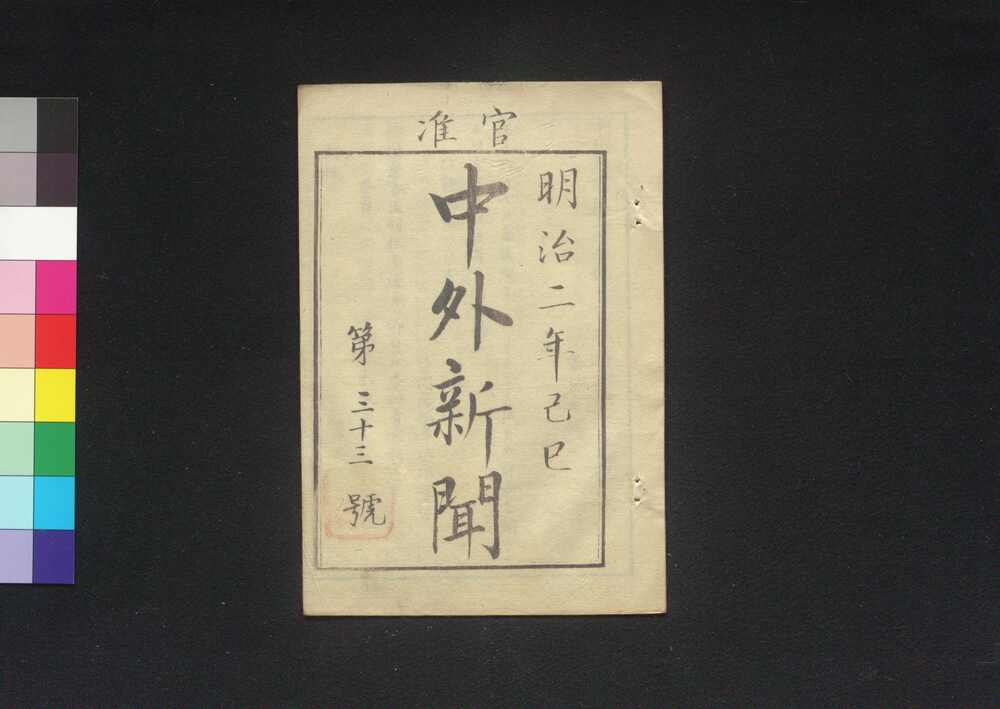 官准
明治二年己巳
中外新聞
第三十三號